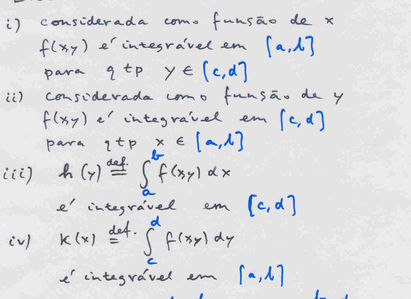 i) considerada como função de x
f(x,y) é integrável em [a,b]
para qtp y ∈ [c,d]
ii) considerada como função de y
f(x,y) é integrável em [c,d]
para qtp x ∈ [a,b]
iii) h(y) def.= ∫_a^b f(x,y) dx
é integrável em [c,d]
iv) k(x) def.= ∫_c^d f(x,y) dy
é integrável em [a,b]